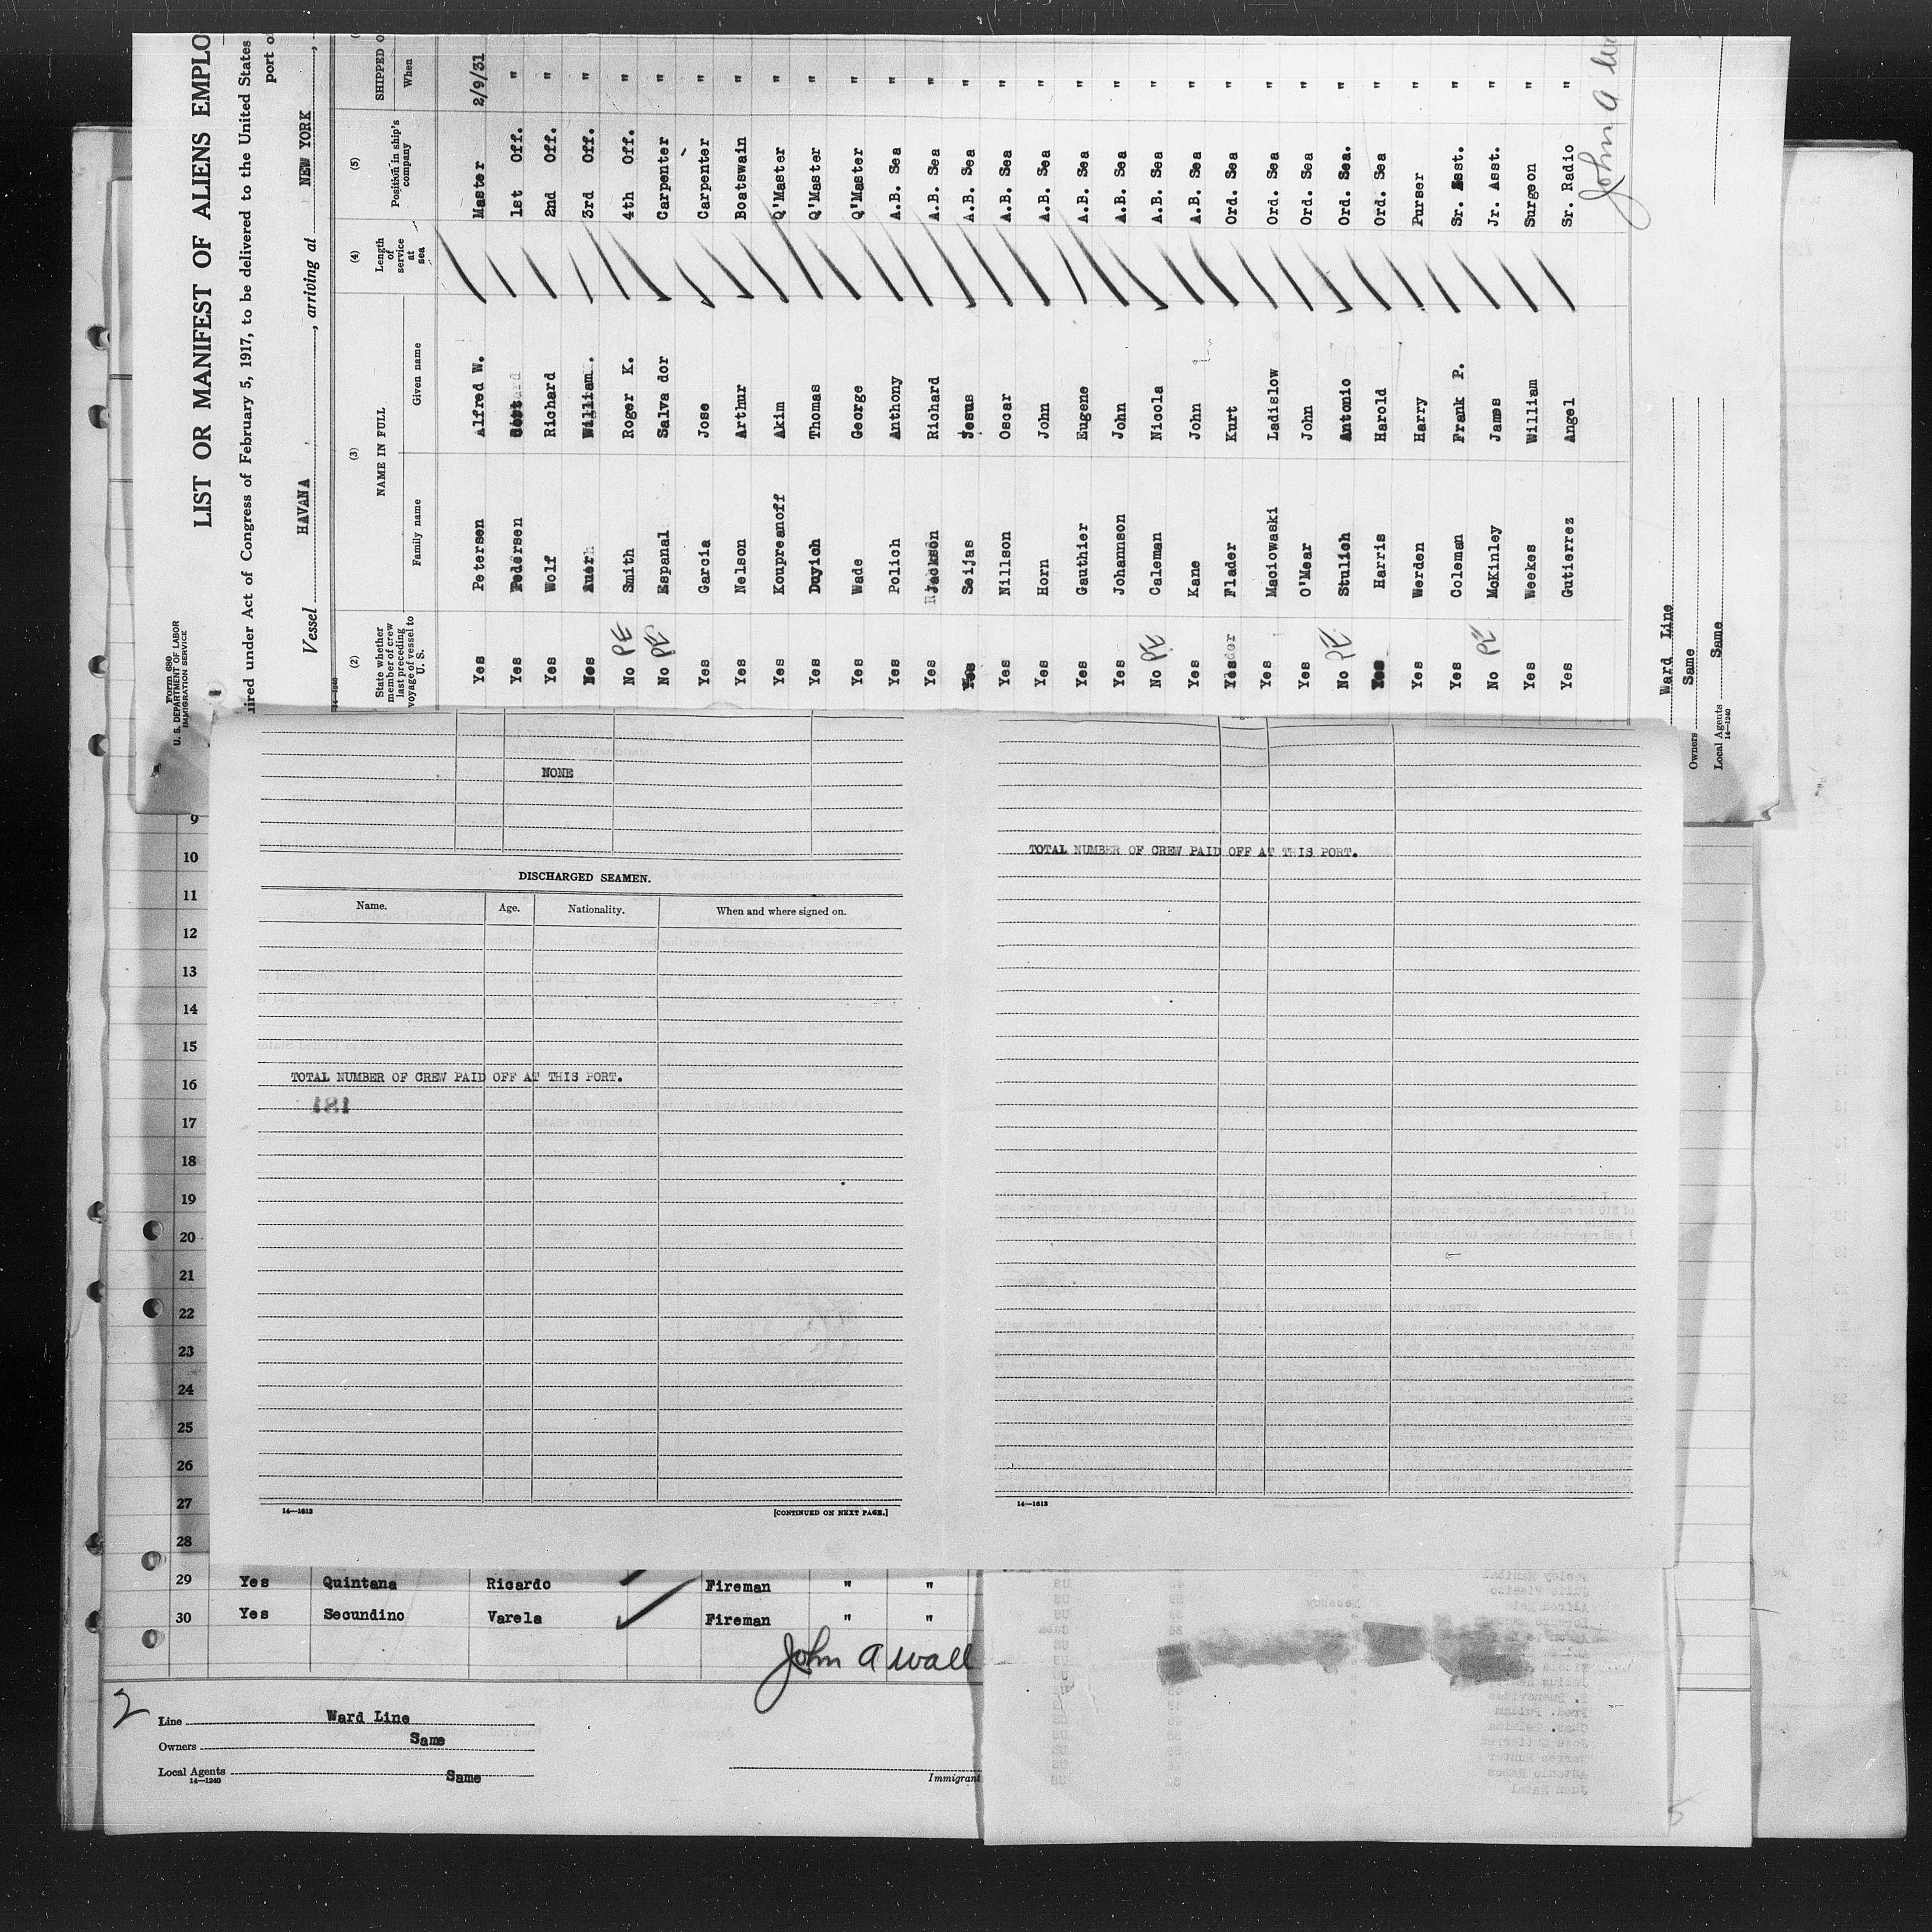 Form 680
U. S. DEPARTMENT OF LABOR
IMMIGRATION SERVICE
LIST OR MANIFEST OF ALIENS EMPLO
ired under Act of Congress of February 5, 1917, to be delivered to the United States
port o
Vessel HAVANA, arriving at NEW YORK,
14—1240
(2) (3) (4) (5)
State whether member of crew last preceding voyage of vessel to U. S.
NAME IN FULL
Family name Given name
Length of service at sea
Position in ship's company
SHIPPED O
When
Yes Petersen Alfred W. Master 2/9/31
Yes Pedersen 1st Off. "
Yes Wolf Richard 2nd Off. "
Yes Auer William. 3rd Off. "
No PE Smith Roger K. 4th Off. "
No PE Espanal Salva dor Carpenter "
Yes Garcia Jose Carpenter "
Yes Nelson Arthur Boatswain "
Yes Koupreanoff Akim Q'Master "
Yes Duyich Thomas Q'Master "
Yes Wade George Q'Master "
Yes Polich Anthony A.B. Sea "
Yes Jackson Richard A.B. Sea "
Yes Seijas Jesus A.B. Sea "
Yes Nillson Oscar A.B. Sea "
Yes Horn John A.B. Sea "
Yes Gauthier Eugene A.B. Sea "
Yes Johannson John A.B. Sea "
No PE Caleman Nicola A.B. Sea "
Yes Kane John A.B. Sea "
Yes Flader Kurt Ord. Sea "
Yes Maciowaski Ladislow Ord. Sea "
Yes O'Mear John Ord. Sea "
No PE Stulich Antonio Ord. Sea. "
Yes Harris Harold Ord. Sea "
Yes Werden Harry Purser "
Yes Coleman Frank P. Sr. Asst. "
No PE McKinley James Jr. Asst. "
Yes Weekes William Surgeon "
Yes Gutierrez Angel Sr. Radio "
John A
Ward Line
Owners Same
Local Agents Same
14—1240
NONE
DISCHARGED SEAMEN.
Name. Age. Nationality. When and where signed on.
TOTAL NUMBER OF CREW PAID OFF AT THIS PORT.
181
14—1613
[CONTINUED ON NEXT PAGE.]
TOTAL NUMBER OF CREW PAID OFF AT THIS PORT.
14—1613
9
10
11
12
13
14
15
16
17
18
19
20
21
22
23
24
25
26
27
28
29 Yes Quintana Ricardo Fireman " "
30 Yes Secundino Varela Fireman " "
John A Wall
2
Line Ward Line
Owners Same
Local Agents Same
14—1240
Immigrant